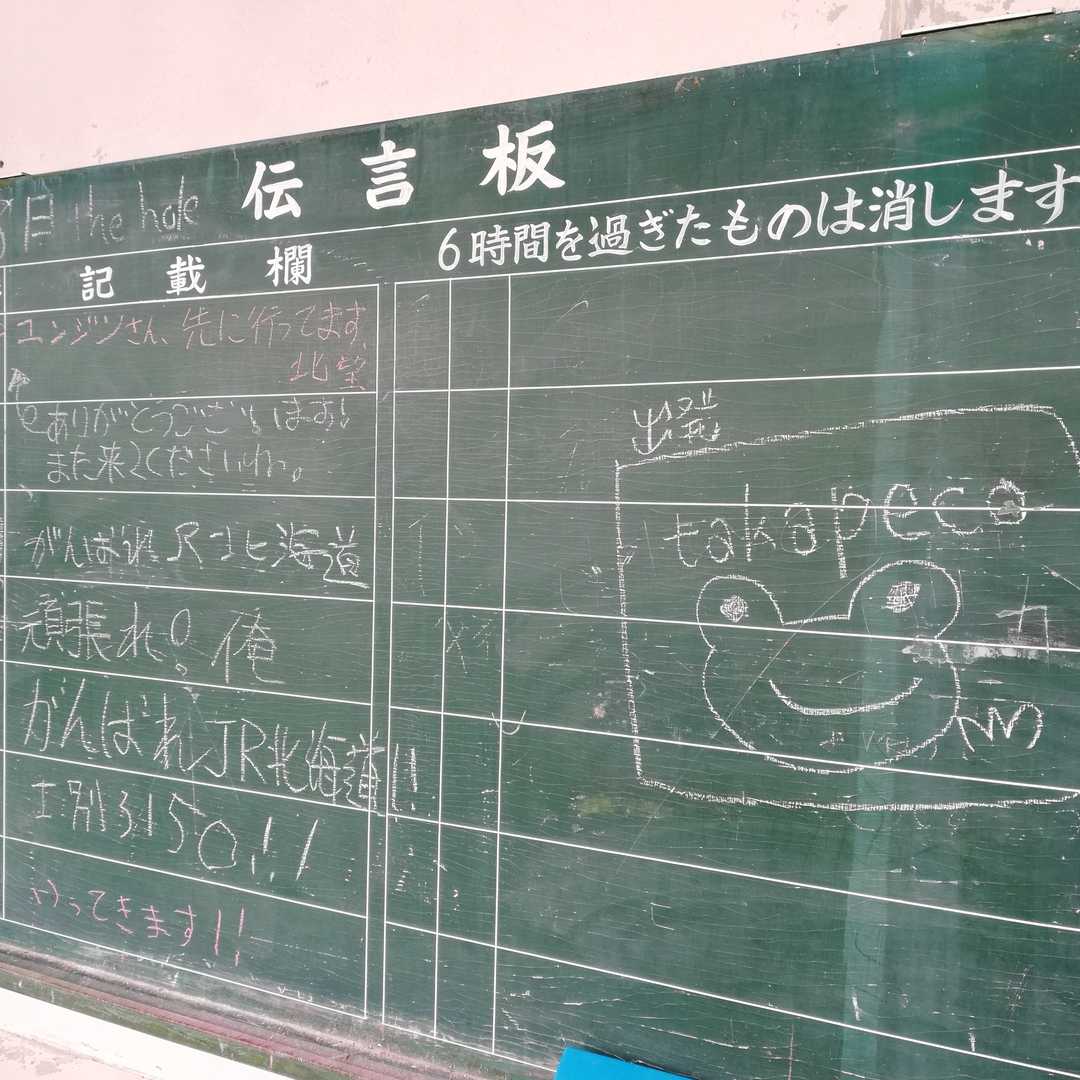 伝言板
日 the hole
6時間を過ぎたものは消します
記載欄
ユンジツさん、先に行ってます
北望
ありがとうございます!
また来てくださいね。
がんばれJR北海道
頑張れ!俺
がんばれJR北海道!!
士別
いってきます!!
出発
takapeco